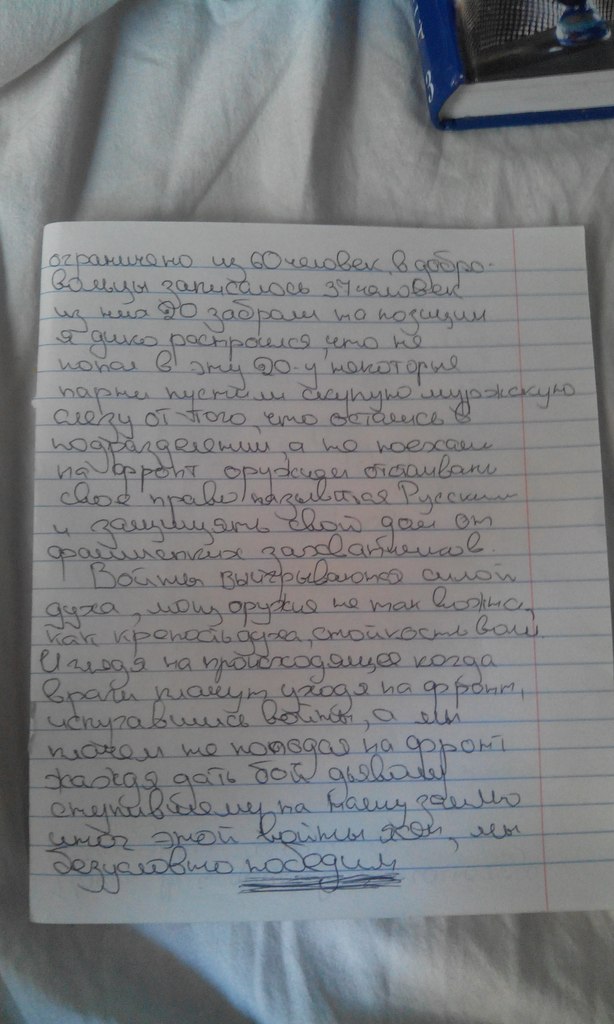 3
ограничено из 60 человек в добро-
вольцы записалось 37 человек
из них 20 забрали на позиции
я дикоростроился, что не
попал в эту 20-у некоторые
парни пустили скупую мужскую
слезу от того, что остались в
подразделении, а не поехали
на фронт оружием отстаивать
свое право называтся Русским
и защищять свой дом от
фашистких захватчиков.
Войны выигрываются силой
духа, мощ оружия не так важна,
как крепость духа, стойкость воли
И глядя на происходящее когда
враги плачут уходя на фронт,
испугавшись войны, а мы
плачем не попадая на фронт
жаждя дать бой дьяволу
ступившему на Нашу землю
итог этой войны ясен, мы
безусловно победим